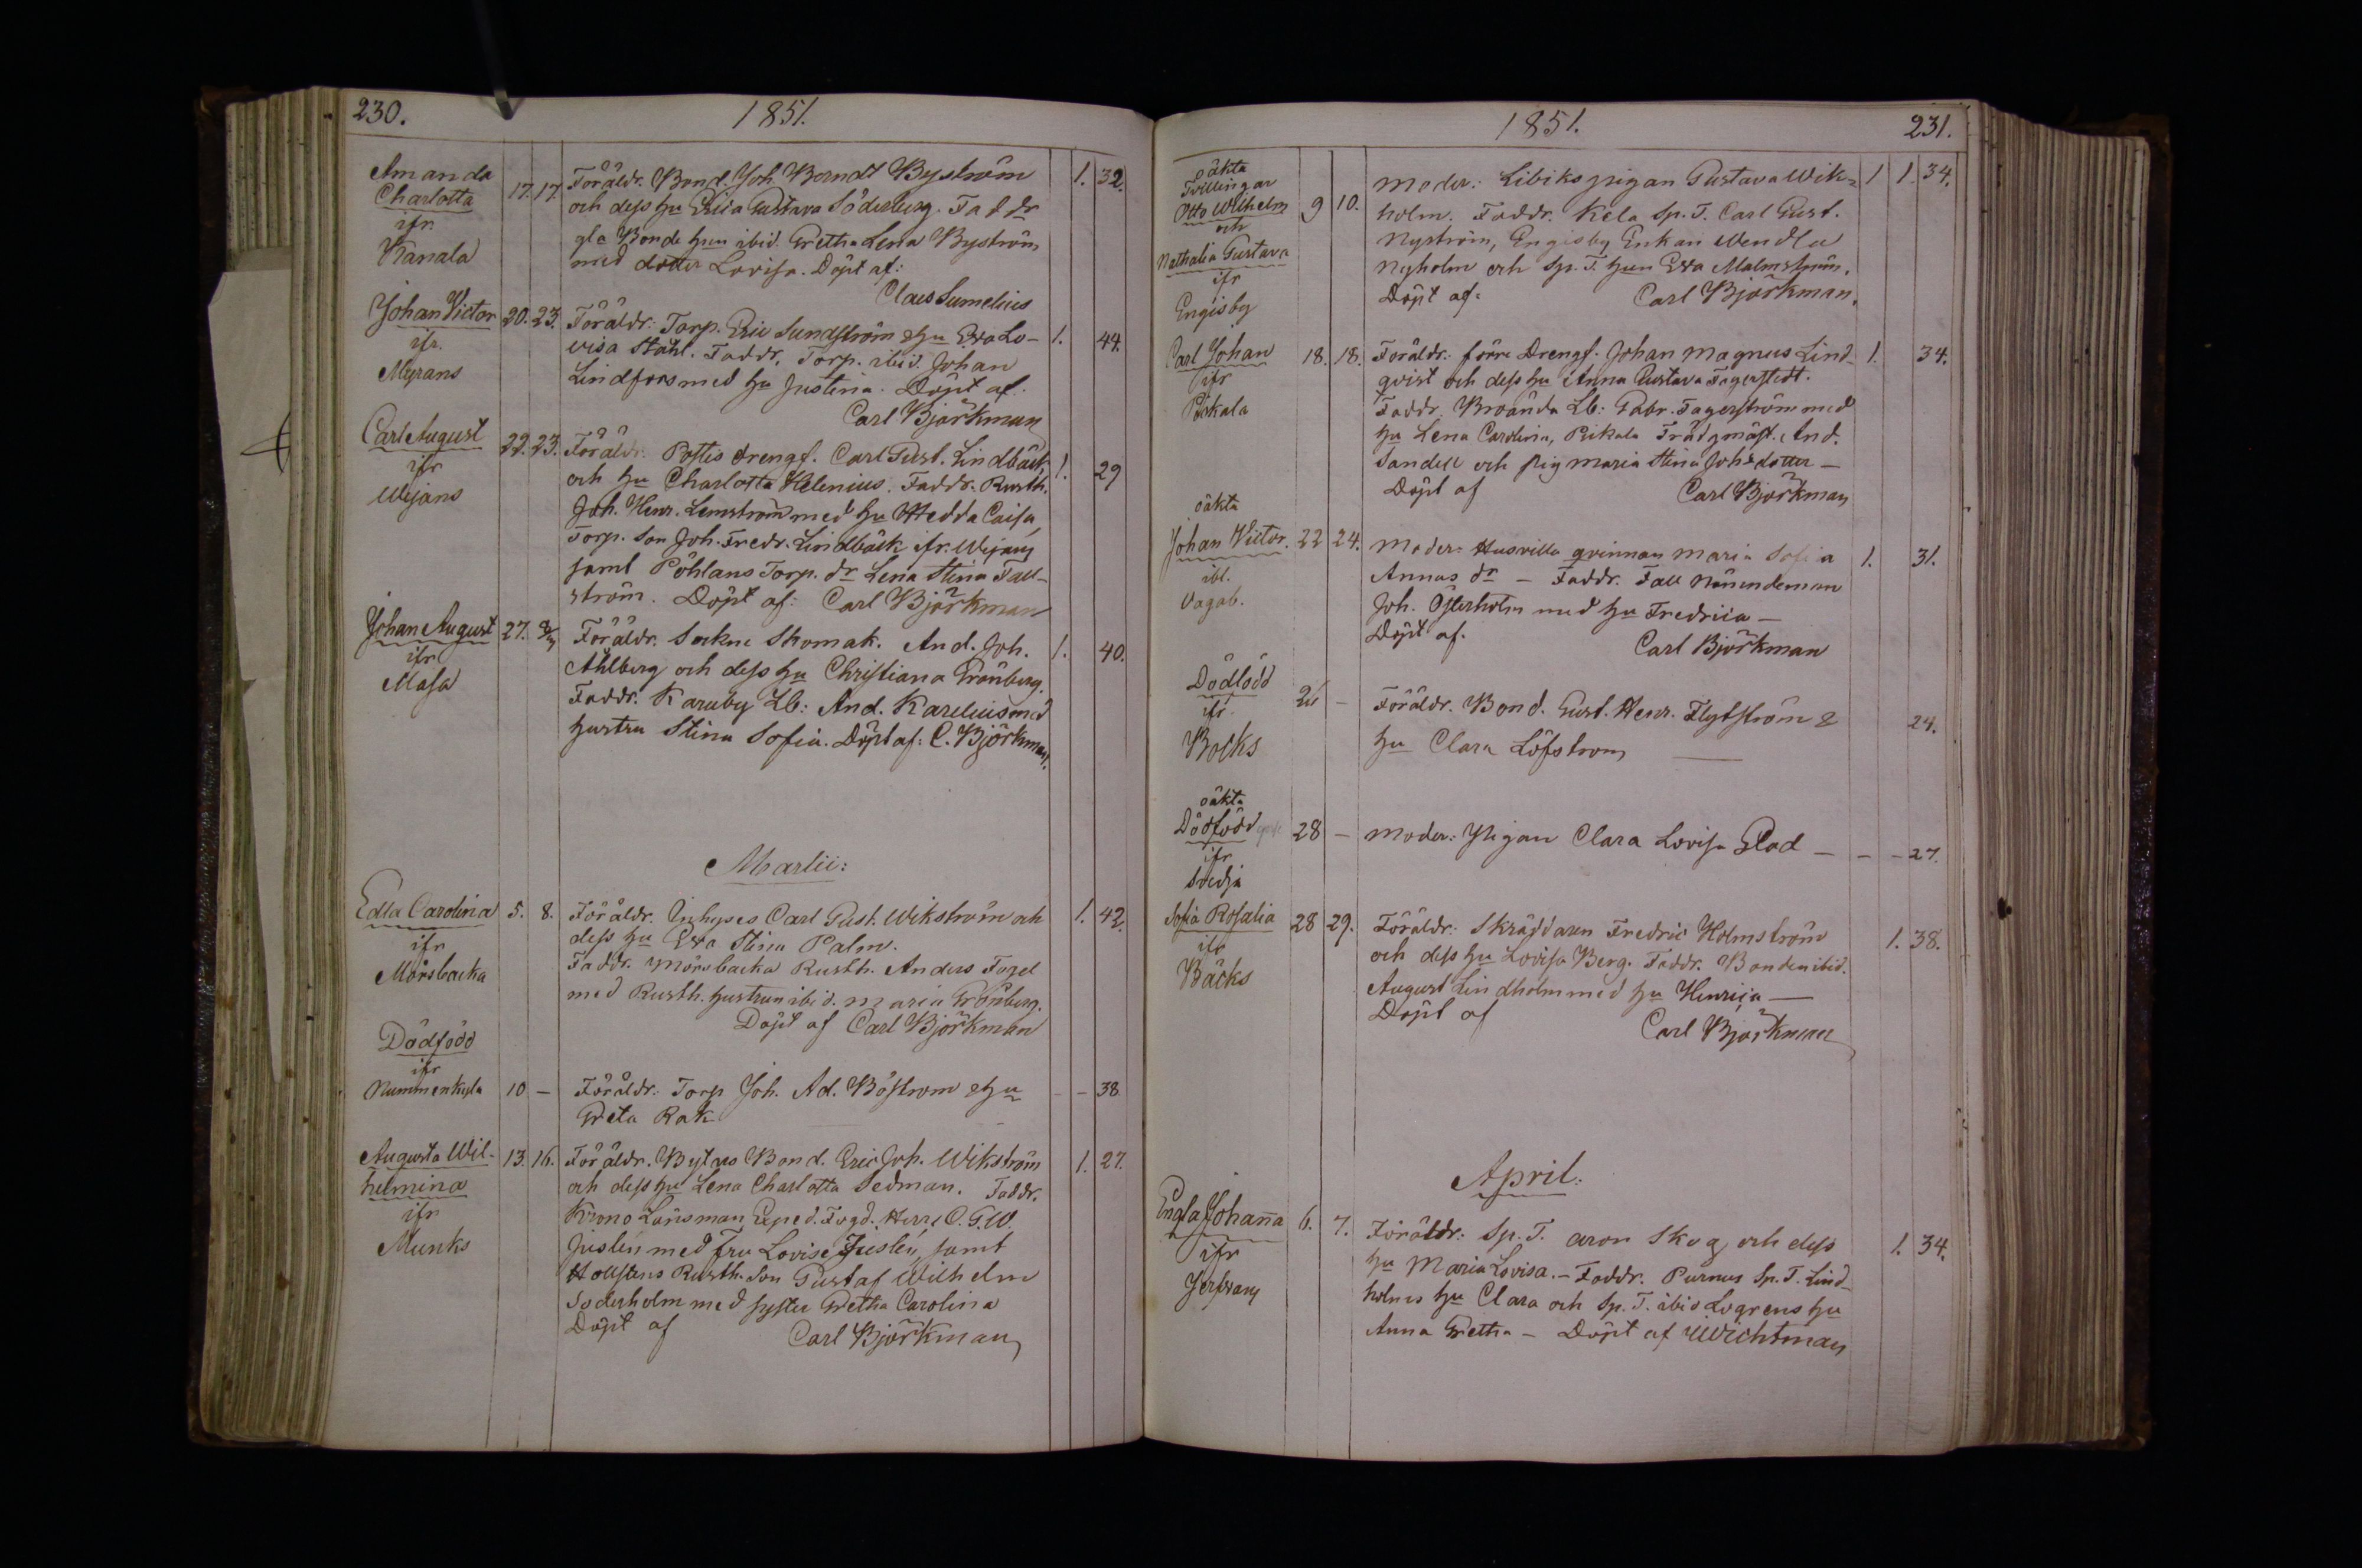 230.
1851.
Amanda
Charlotta
ifr.
Kanala
17. 17.
Föräldr. Bond. Joh. Berndt Byström
och dess hu Erica Gustava Söderberg. Faddr
gla Bonde hun ibid. Gretha Lena Byström
med dotter Lovisa. Döpt af:
Claes Sumelius
1. 32.
Johan Victor
ifr.
Myrans
20. 23.
Föräldr: Torp. Eric Sundström & hu Eva Lo-
visa Ståhl. Faddr. Torp. ibid. Johan
Lindfors med hu Justina. Döpt af:
Carl Björkman
1. 44.
Carl August
ifr
Wejans
22. 23.
Föräldr. Pottis drengf. Carl Gust. Lindbäck,
och hu Charlotta Helenius. Faddr. Rusth.
Joh. Henr. Lemström med hu Hedda Caisa,
Torp. Son Joh. Fredr. Lindbäck ifr. Wejans
samt Pöhlans Torp. dr Lena Stina Fall-
ström. Döpt af: Carl Björkman
1. 29
Johan August
ifr
Masa
27.
Föräldr. Sockne Skomak. And. Joh.
Ahlberg och dess hu Christiana Grönberg.
Faddr. Karuby Lb: And. Karelius med
hustru Stina Sofia. Döpt af: C. Björkman.
1. 40.
Martii:
Edla Carolina
ifr
Mörsbacka
5. 8.
Föräldr. Inhyses Carl Gust. Wikström och
dess hu Eva Stina Palm.
Faddr. Mörsbacka Rusth. Anders Fogel
med Rusth. hustrun ibid. Maria Grönberg.
Döpt af Carl Björkman
1. 42.
Dödfödd
ifr
Nummenkyla
10 –
Föräldr: Torp Joh. Ad. Boström & hu
Greta Rak
– – 38
Augusta Wil-
helmina
ifr
Munks
13. 16.
Föräldr. Bytars Bond. Eric Joh. Wikström
och dess hu Lena Charlotta Sedman. Faddr.
Krono Länsman, Exped. Fogd. Herr C. G. W.
Juslén med Fru Lovise Juslén, samt
Hollstens Rusth. Son Gustaf Wilhelm
Söderholm med syster Gretha Carolina
Döpt af
Carl Björkman
1. 27.
1851.
231.
oäkta
Tvillingar
Otto Wilhelm
och
Nathalia Gustava
ifr
Engisby
9 10.
Moder: Libiks pigan Gustava Wik-
holm. Faddr. Kela Sp. T. Carl Gust.
Nyström, Engisby Enkan Wendla
Nyholm och Sp. T. hun Eva Malmström.
Döpt af:
Carl Björkman.
1 1. 34.
Carl Johan
ifr
Pikala
18. 18.
Föräldr: förre Drengf. Johan Magnus Lind-
qvist och dess hu Anna Gustava Fagerstedt.
Faddr. Broända Lb: Gabr. Fagerström med
hu Lena Carolina, Pikala Trädgmäst. And.
Sandell och pig Maria Stina Johsdotter –
Döpt af
Carl Björkman
1. 34.
oäkta
Johan Victor.
ibl.
Vagab.
22 24.
Moder: Husvilla qvinnan Maria Sofia
Annas dr – Faddr. Fall Nämndeman
Joh. Österholm med hu Fredrica –
Döpt af.
Carl Björkman
1. 31.
Dödfödd
ifr
Bocks
–
Föräldr. Bond. Gust. Henr. Flytström &
hu Clara Löfström
24.
oäkta
Dödfödd
ifr
Svedja
28 –
Moder: Pigan Clara Lovisa Glad –
– – 27.
Sofia Rosalia
ifr
Bäcks
28 29.
Föräldr: Skräddaren Fredric Holmström
och dess hu Lovisa Berg. Faddr. Bonden ibid.
August Lindholm med hu Henrica –
Döpt af
Carl Björkman
1. 38.
April:
Engla Johanna
ifr
6. 7.
Föräldr: Sp. T. Aron Skog och dess
hu Maria Lovisa. – Faddr. Purnus Sp. T. Lind-
holms hu Clara och Sp. T. ibid Logrens hu
Anna Gretha – Döpt af Wichtman
1. 34.